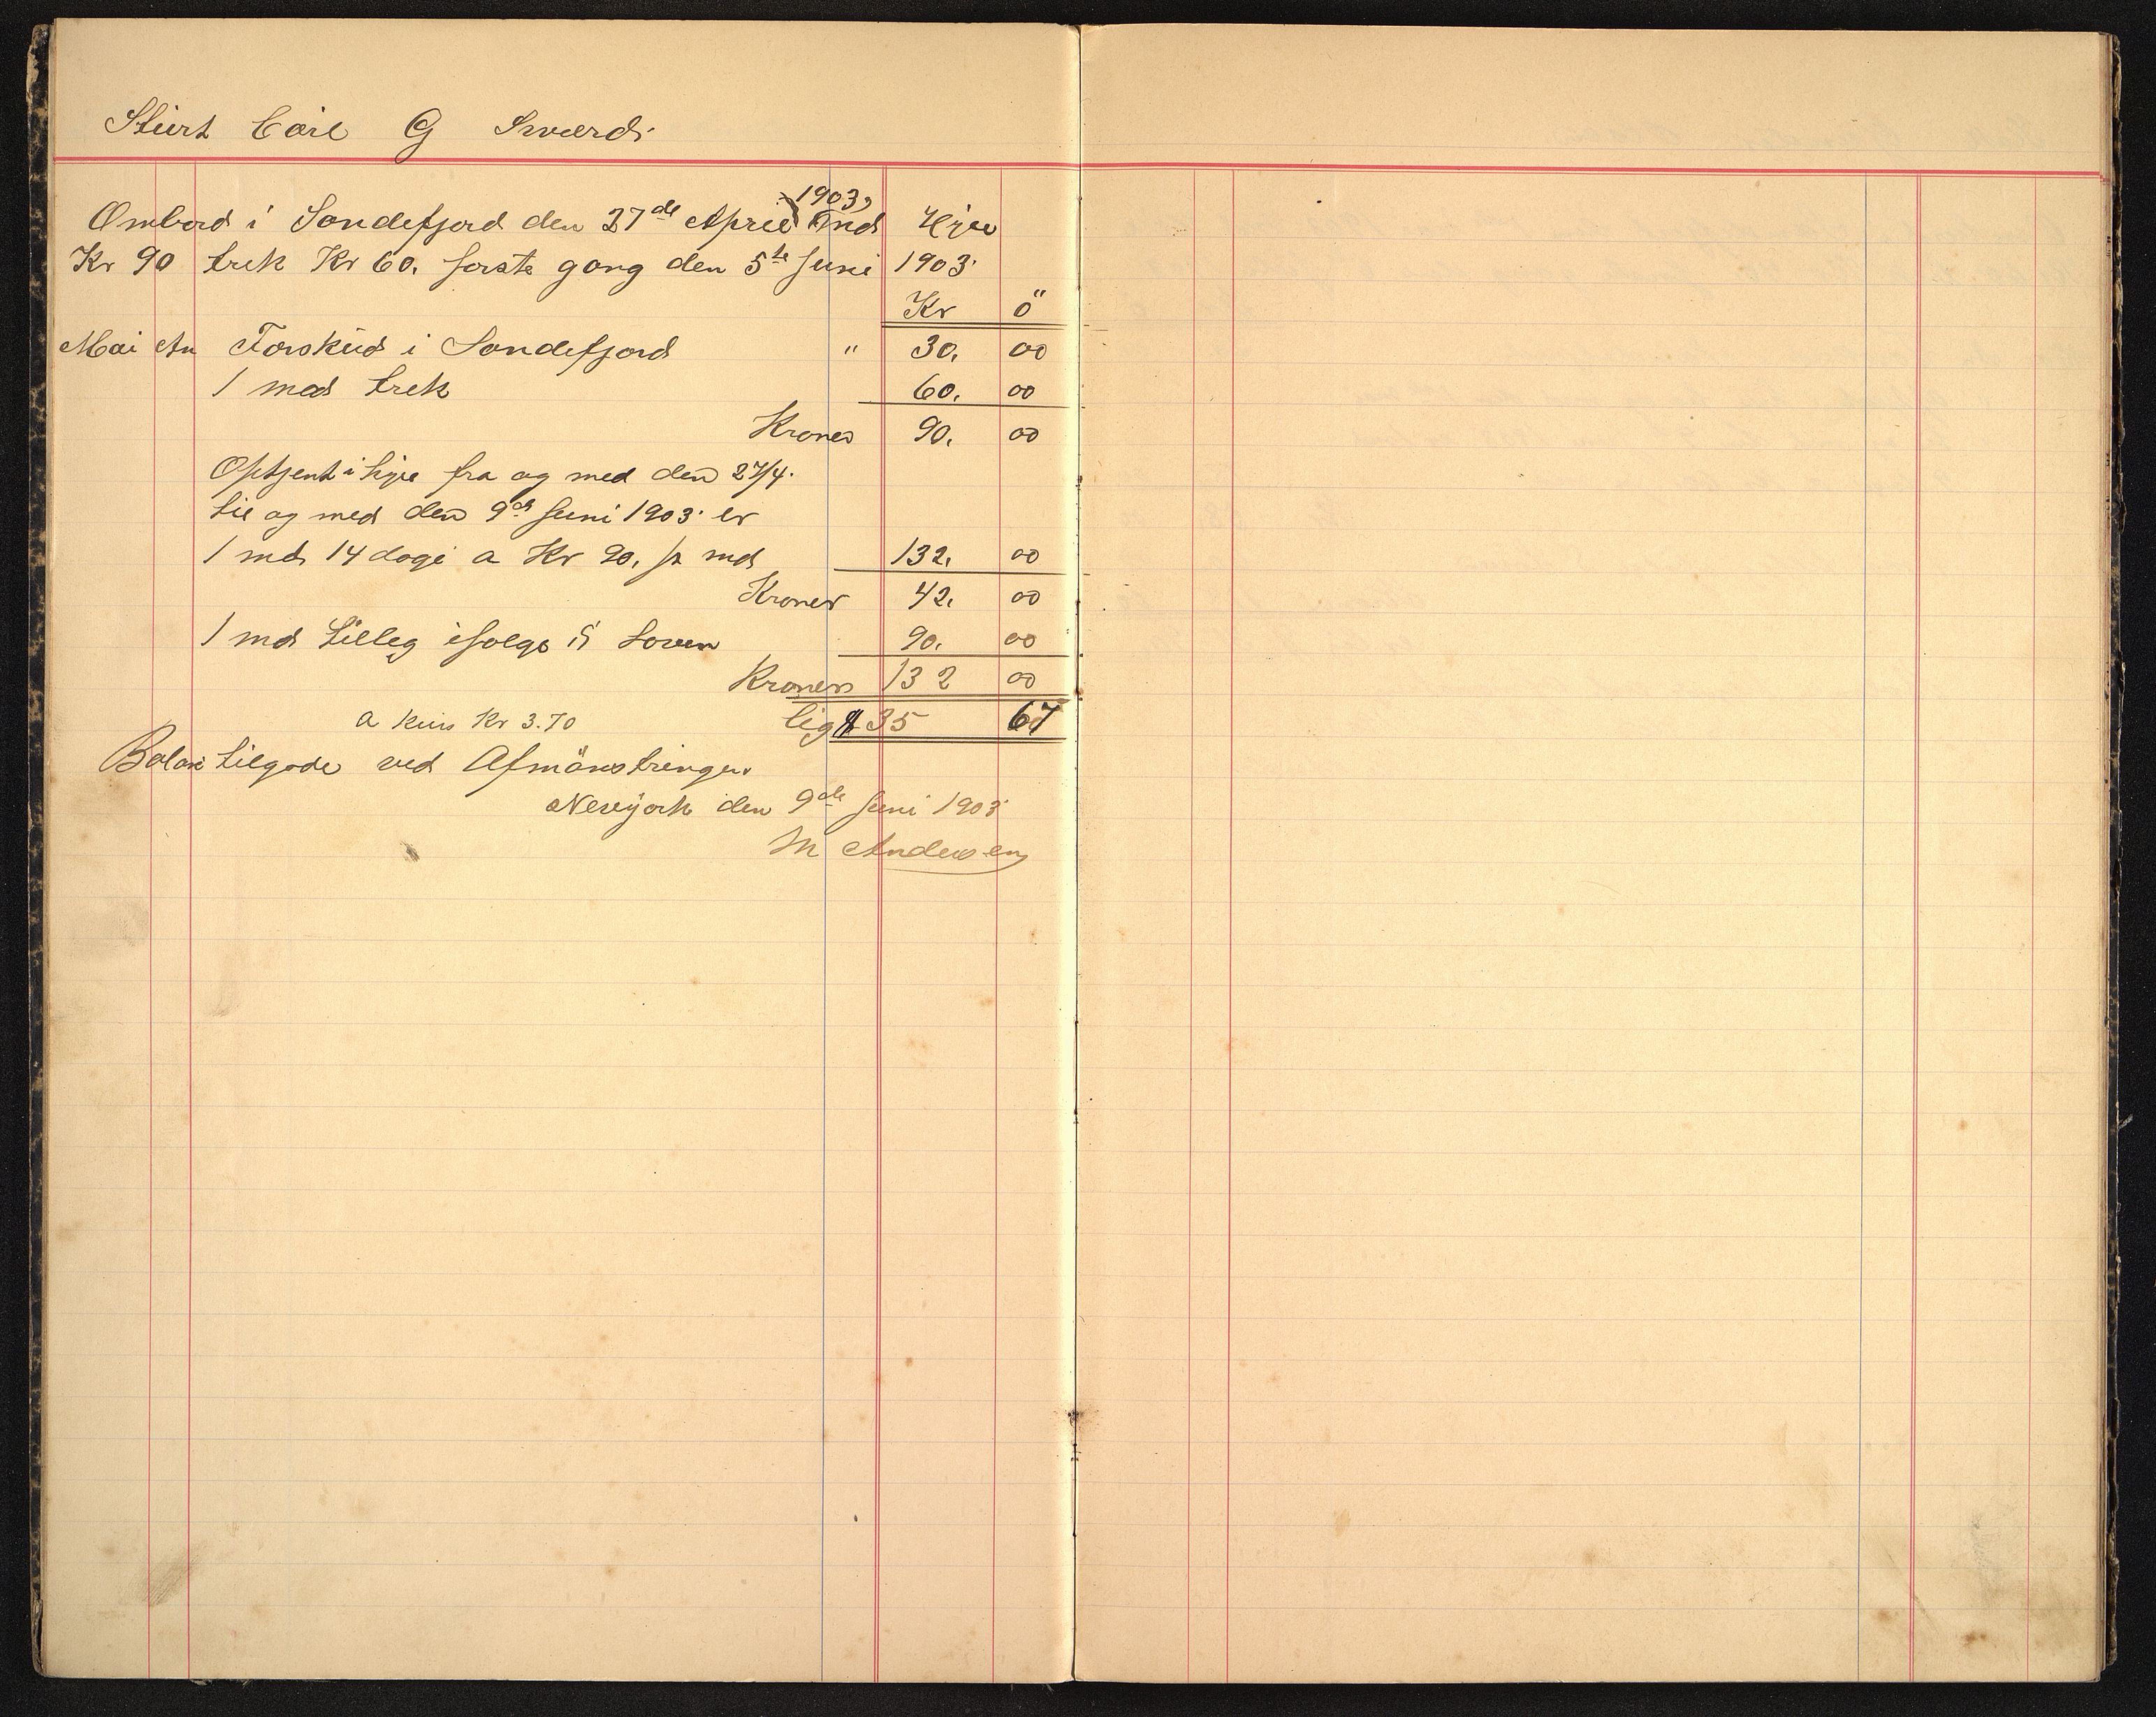 Stuert Carl G Sværd.
1903,
Ombord i Sandefjord den 27de April Hyre
Kr 90 trek Kr 60. forste gang den 5te Juni 1903.
Kr ö
Mai An Forskud i Sandefjord " 30. 00
1 mds trek 60. 00
Kroner 90. 00
Optjent i hyre fra og med den 27/4.
til og med den 9de Juni 1903. er
1 mds 14 dage a Kr 90. pr mds 132. 00
Kroner 42. 00
1 mds tilleg ifolge Loven 90. 00
Kroner 132 00
a kurs Kr 3.70 lig $ 35 67
Balance tilgode ved Afmönstringen.
Newyork den 9de Juni 1903
M Andersen